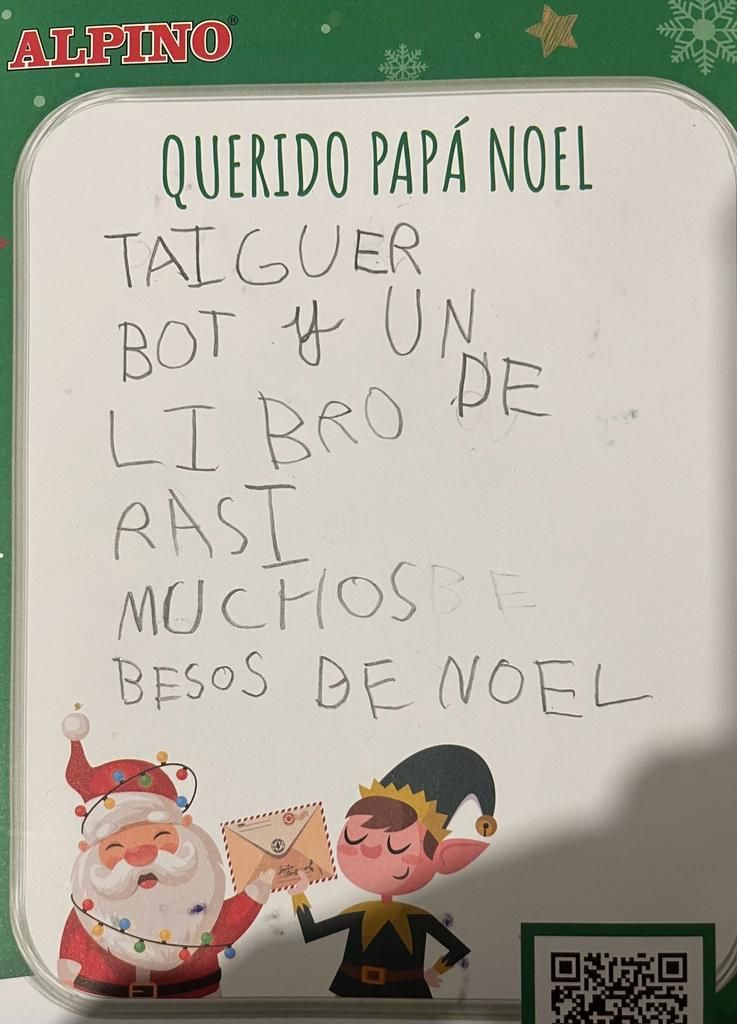 ALPINO®
QUERIDO PAPÁ NOEL
TAIGUER
BOT Y UN
LIBRO DE
RASI
MUCHOS BE
BESOS DE NOEL